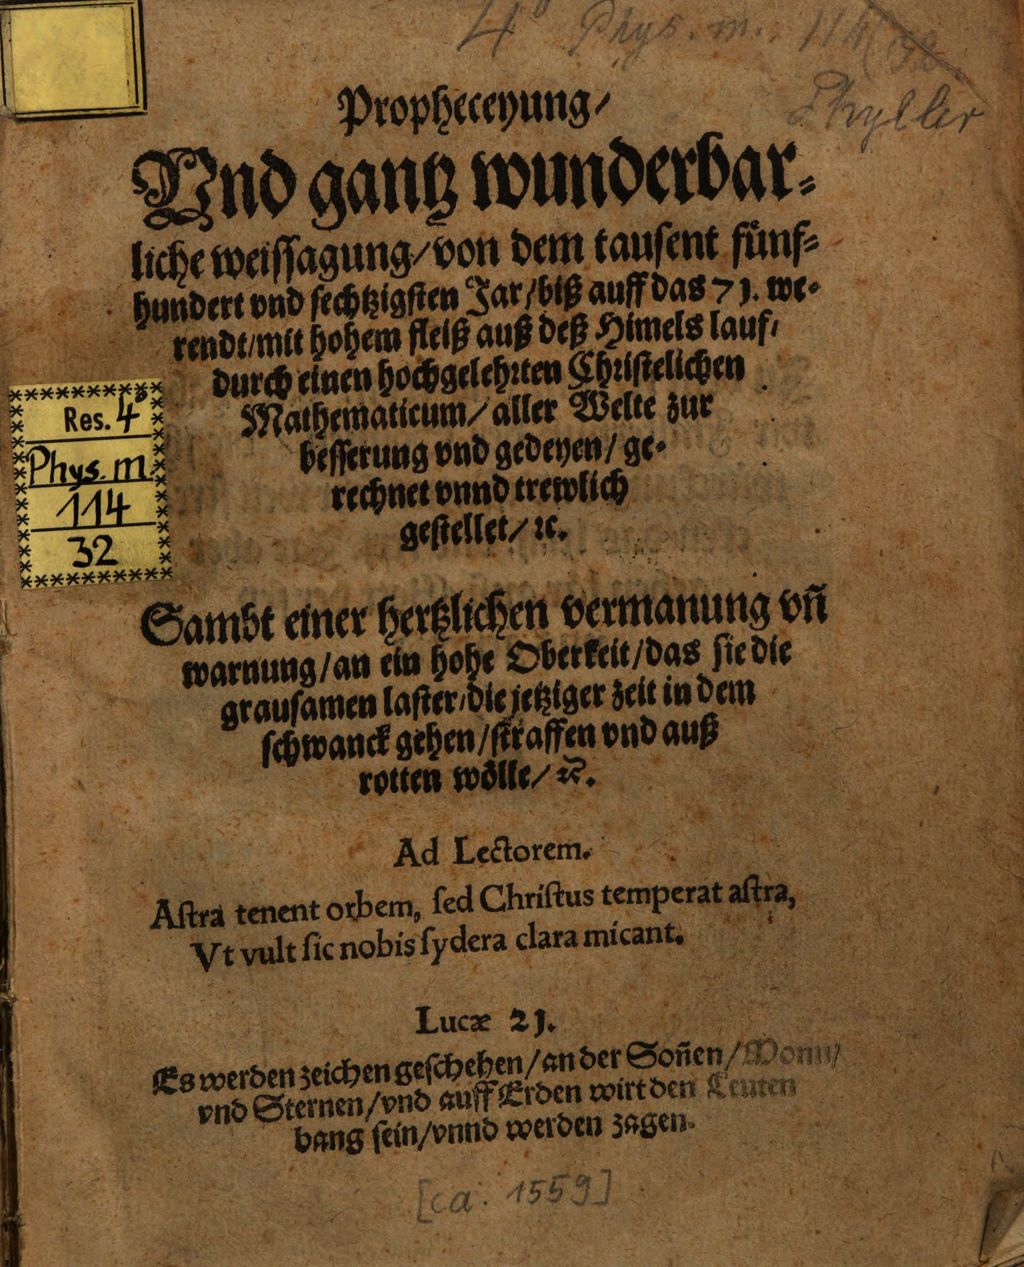 4° Phys. m. 114/32
Phyller
Propheceyung/
Vnd gantz wunderbar⸗
liche weissagung/von dem tausent fünf⸗
hundert vnd sechtzigsten Jar/biß auff das 71. we⸗
rendt/mit hohem fleiß auß deß Himels lauf/
durch einen hochgelehrten Christelichen
Mathematicum/aller Welte zur
besserung vnd gedeyen/ge⸗
rechnet vnnd trewlich
gestellet/ꝛc.
Res. 4°
Phys. m.
114
32
Sambt einer hertzlichen vermanung vñ
warnung/an ein hohe Oberkeit/das sie die
grausamen laster/die jetziger zeit in dem
schwanck gehen/straffen vnd auß
rotten wölle/ꝛc.
Ad Lectorem.
Astra tenent orbem, sed Christus temperat astra,
Vt vult sic nobis sydera clara micant.
Lucæ 21.
Es werden zeichen geschehen/an der Soñen/Monn/
vnd Sternen/vnd auff Erden wirt den Leuten
bang sein/vnnd werden zagen.
[ca. 1559]